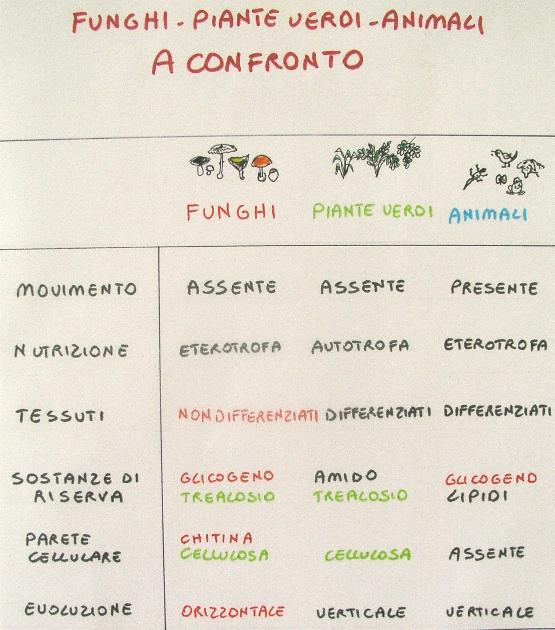 FUNGHI - PIANTE VERDI - ANIMALI
A CONFRONTO
FUNGHI PIANTE VERDI ANIMALI
MOVIMENTO ASSENTE ASSENTE PRESENTE
NUTRIZIONE ETEROTROFA AUTOTROFA ETEROTROFA
TESSUTI NON DIFFERENZIATI DIFFERENZIATI DIFFERENZIATI
SOSTANZE DI GLICOGENO AMIDO GLICOGENO
RISERVA TREALOSIO TREALOSIO LIPIDI
PARETE CHITINA
CELLULARE CELLULOSA CELLULOSA ASSENTE
EVOLUZIONE ORIZZONTALE VERTICALE VERTICALE